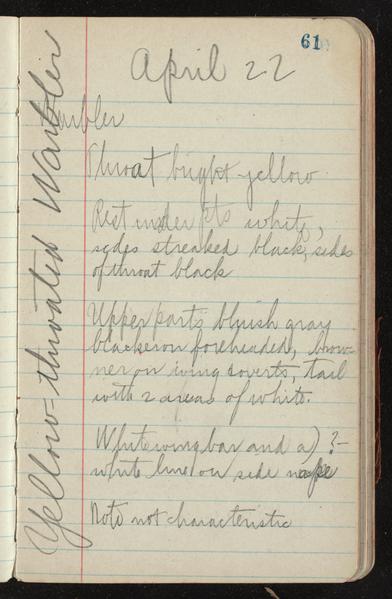 61
April 22
Yellow-throated Warbler
Warbler
Throat bright yellow
Rest under pts white,
sides streaked black, sides
of throat black
Upper parts bluish gray
blacker on forehead, brow-
ner on wing coverts, tail
with 2 areas of white.
White wing bar and a) ?-
white line on side nape
Note not characteristic